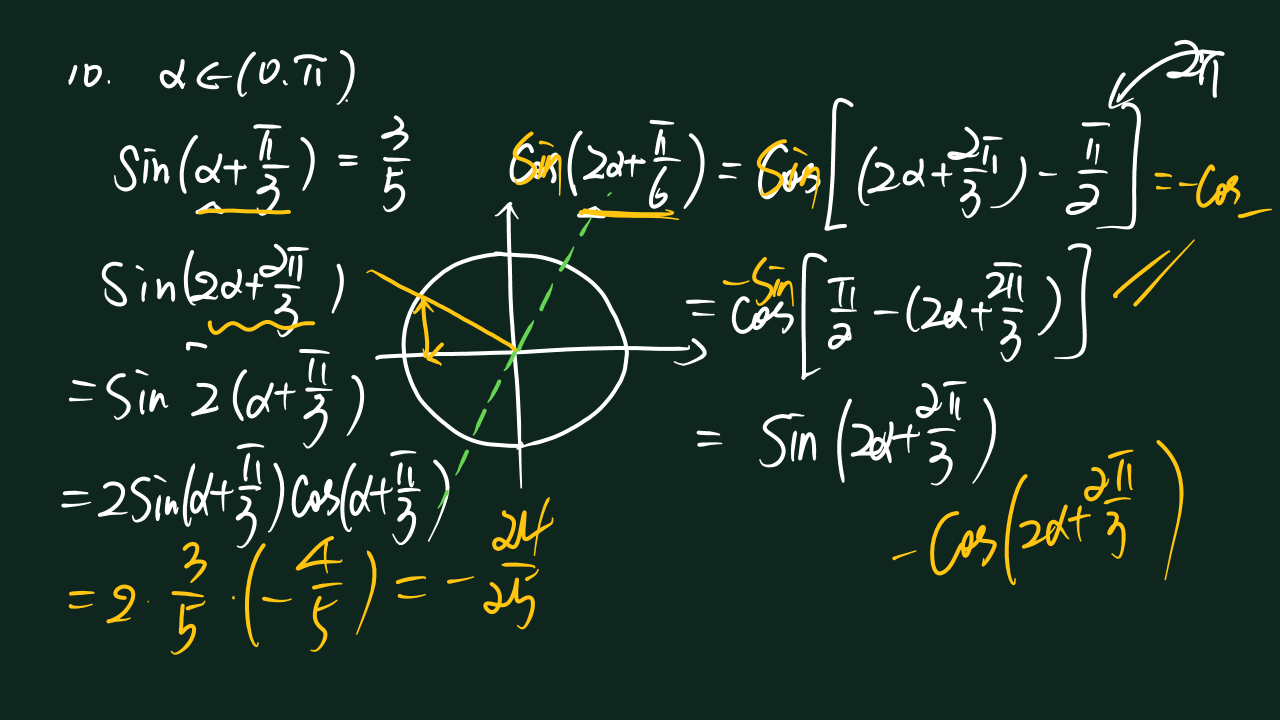 10. α∈(0.π)
Sin(α+π/3) = 3/5
Sin(2α+2π/3)
=Sin 2(α+π/3)
=2Sin(α+π/3)Cos(α+π/3)
=2·3/5·(-4/5)=-24/25
Sin(2α+π/6)=Sin[(2α+2π/3)-π/2]=-Cos
2π
=-Sin cos[π/2-(2α+2π/3)]
= Sin(2α+2π/3)
-Cos(2α+2π/3)